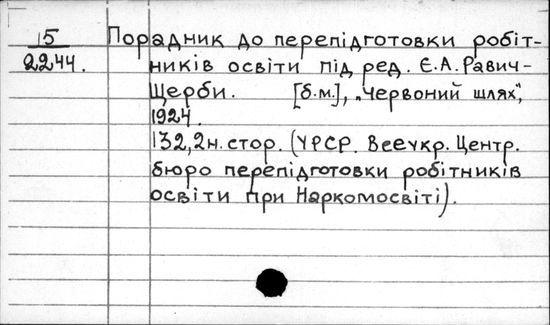 15 Порадник до перепідготовки робіт-
2244. ників освіти під ред. Є.А. Равич-
Щерби. [б.м.], „Червоний шлях",
1924.
132, 2н. стор. (УРСР. Всеукр. Центр.
бюро перепідготовки робітників
освіти при Наркомосвіті).